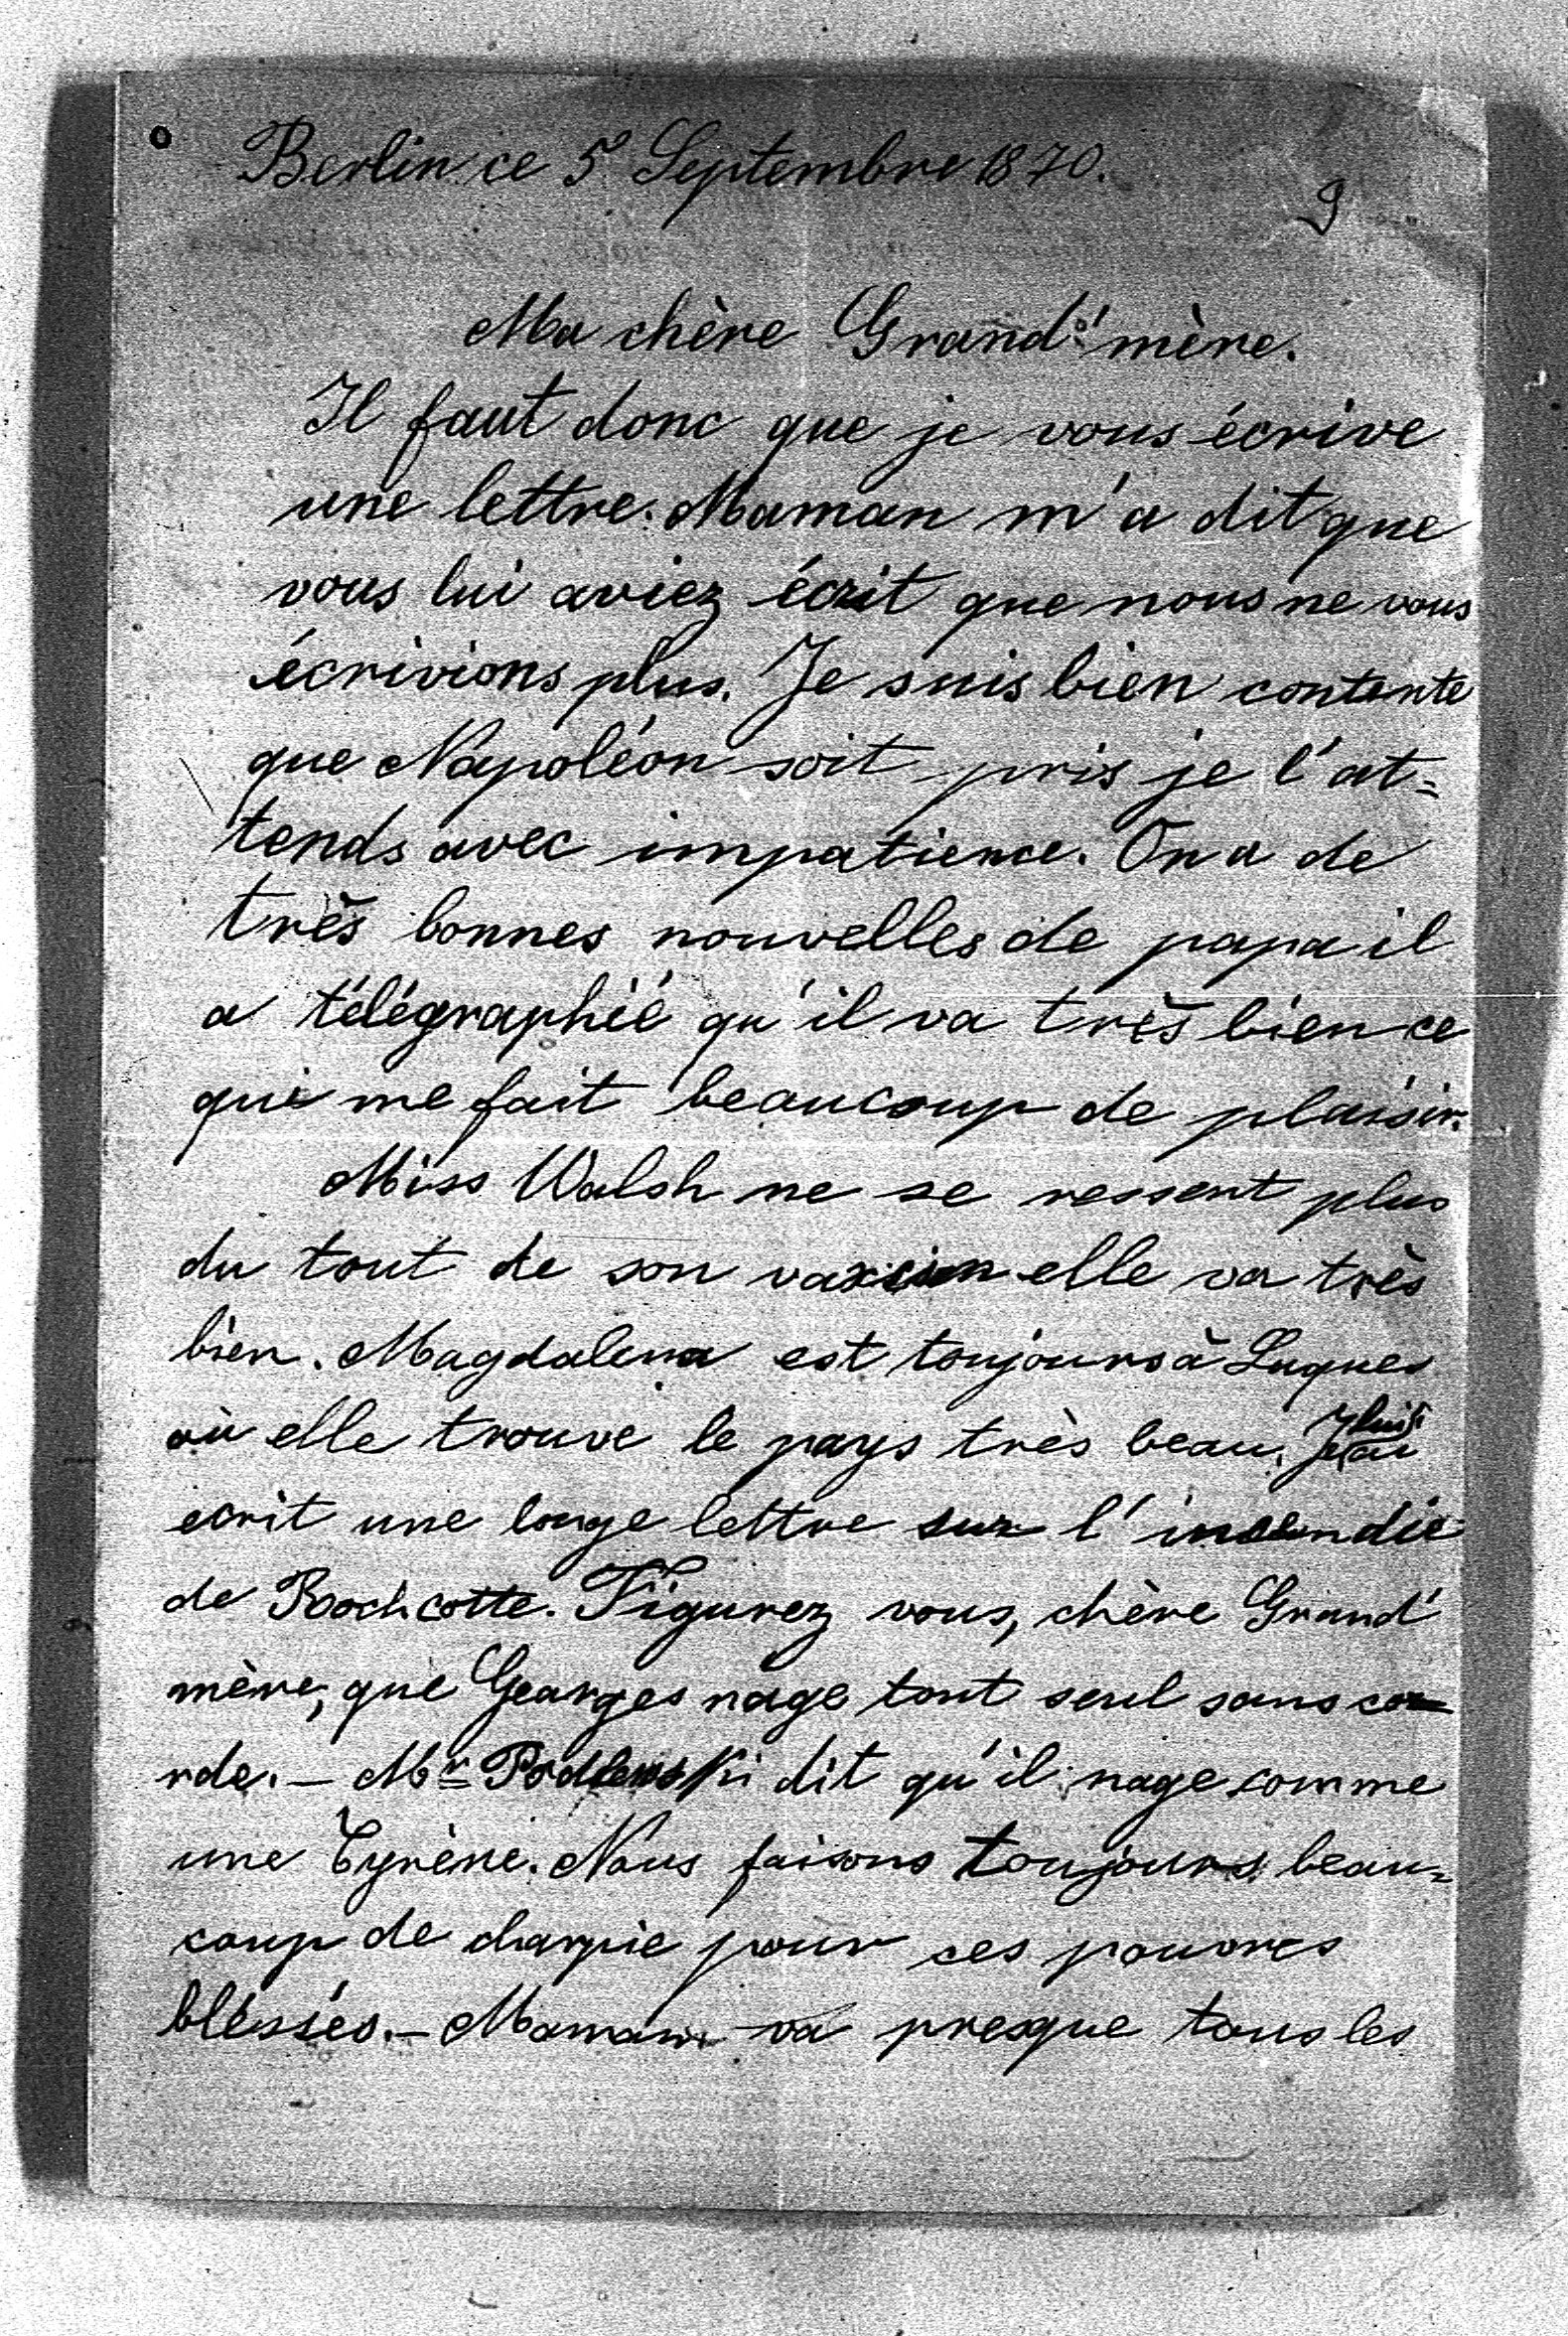 Berlin ce 5 Septembre 1870.
9
Ma chère Grand'mère.
Il faut donc que je vous écrive
une lettre. Maman m'a dit que
vous lui aviez écrit que nous ne vous
écrivions plus. Je suis bien contente
que Napoléon soit pris je l'at=
tends avec impatience. On a de
très bonnes nouvelles de papa il
a télégraphié qu'il va très bien ce
qui me fait beaucoup de plaisir.
Miss Walsh ne se ressent plus
du tout de son elle va très
bien. Magdalena est toujours à Luques
où elle trouve le pays très beau. Je lui ai
ecrit une longe lettre sur l'incendie
de Rochcotte. Figurez vous, chère Grand'
mère, que Georges nage tout seul sans co=
rde. — Mr Podlewski dit qu'il nage comme
une Cyrène. Nous faisons toujours beau=
coup de charpie pour ces pauvres
blessés. — Maman va presque tous les